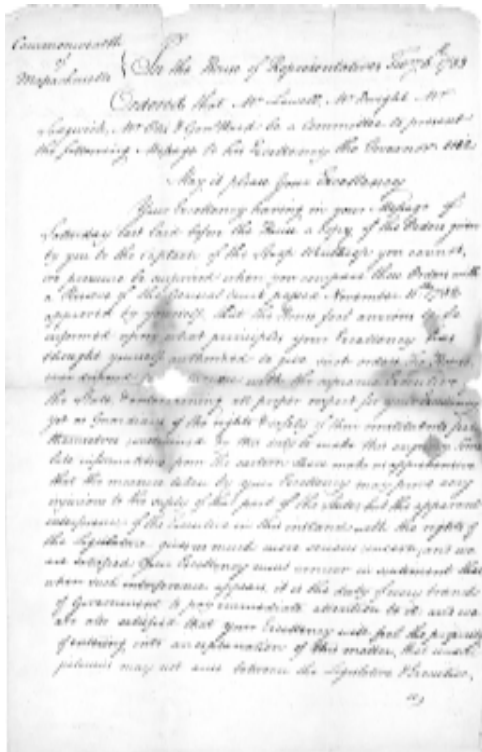 Commonwealth
of
Massachusetts
In the House of Representatives Feby 6th 1783
Ordered, that Mr Lowell, Mr Dwight Mr
Sedgwick, Mr Otis & Genl Ward be a Committee to present
the following Message to his Excellency the Governor viz
May it please your Excellency
Your Excellency having in your Message of
Saturday last laid before the House a Copy of the Orders given
by you to the captain of the Sloop you cannot,
we presume be surprised when you compare these Orders with
a Resolve of the General Court passed November
approved by yourself, that the House feel anxious to be
informed upon what principles your Excellency has
thought yourself authorised to give such orders
with the supreme Executive
the State & entertaining all proper respect for your Excellency
yet as Guardians of the rights & safety of their constituents feel
themselves constrained by this duty to make that enquiry Some
late informations from the eastern make us apprehensive
that the measures taken by your Excellency may prove very
injurious to the safety of that part of the State; but the apparent
interference of the Executive in this instance with the rights of
the Legislature gives us much more serious concern, and we
are satisfied Your Excellency must concur in sentiment that
when such interference appears, it is the duty of every branch
of Government to pay immediate attention to it and we
are also satisfied that your Excellency will feel the propriety
of entering into an explanation of this matter, that
may not arise between the Legislative & Executive,